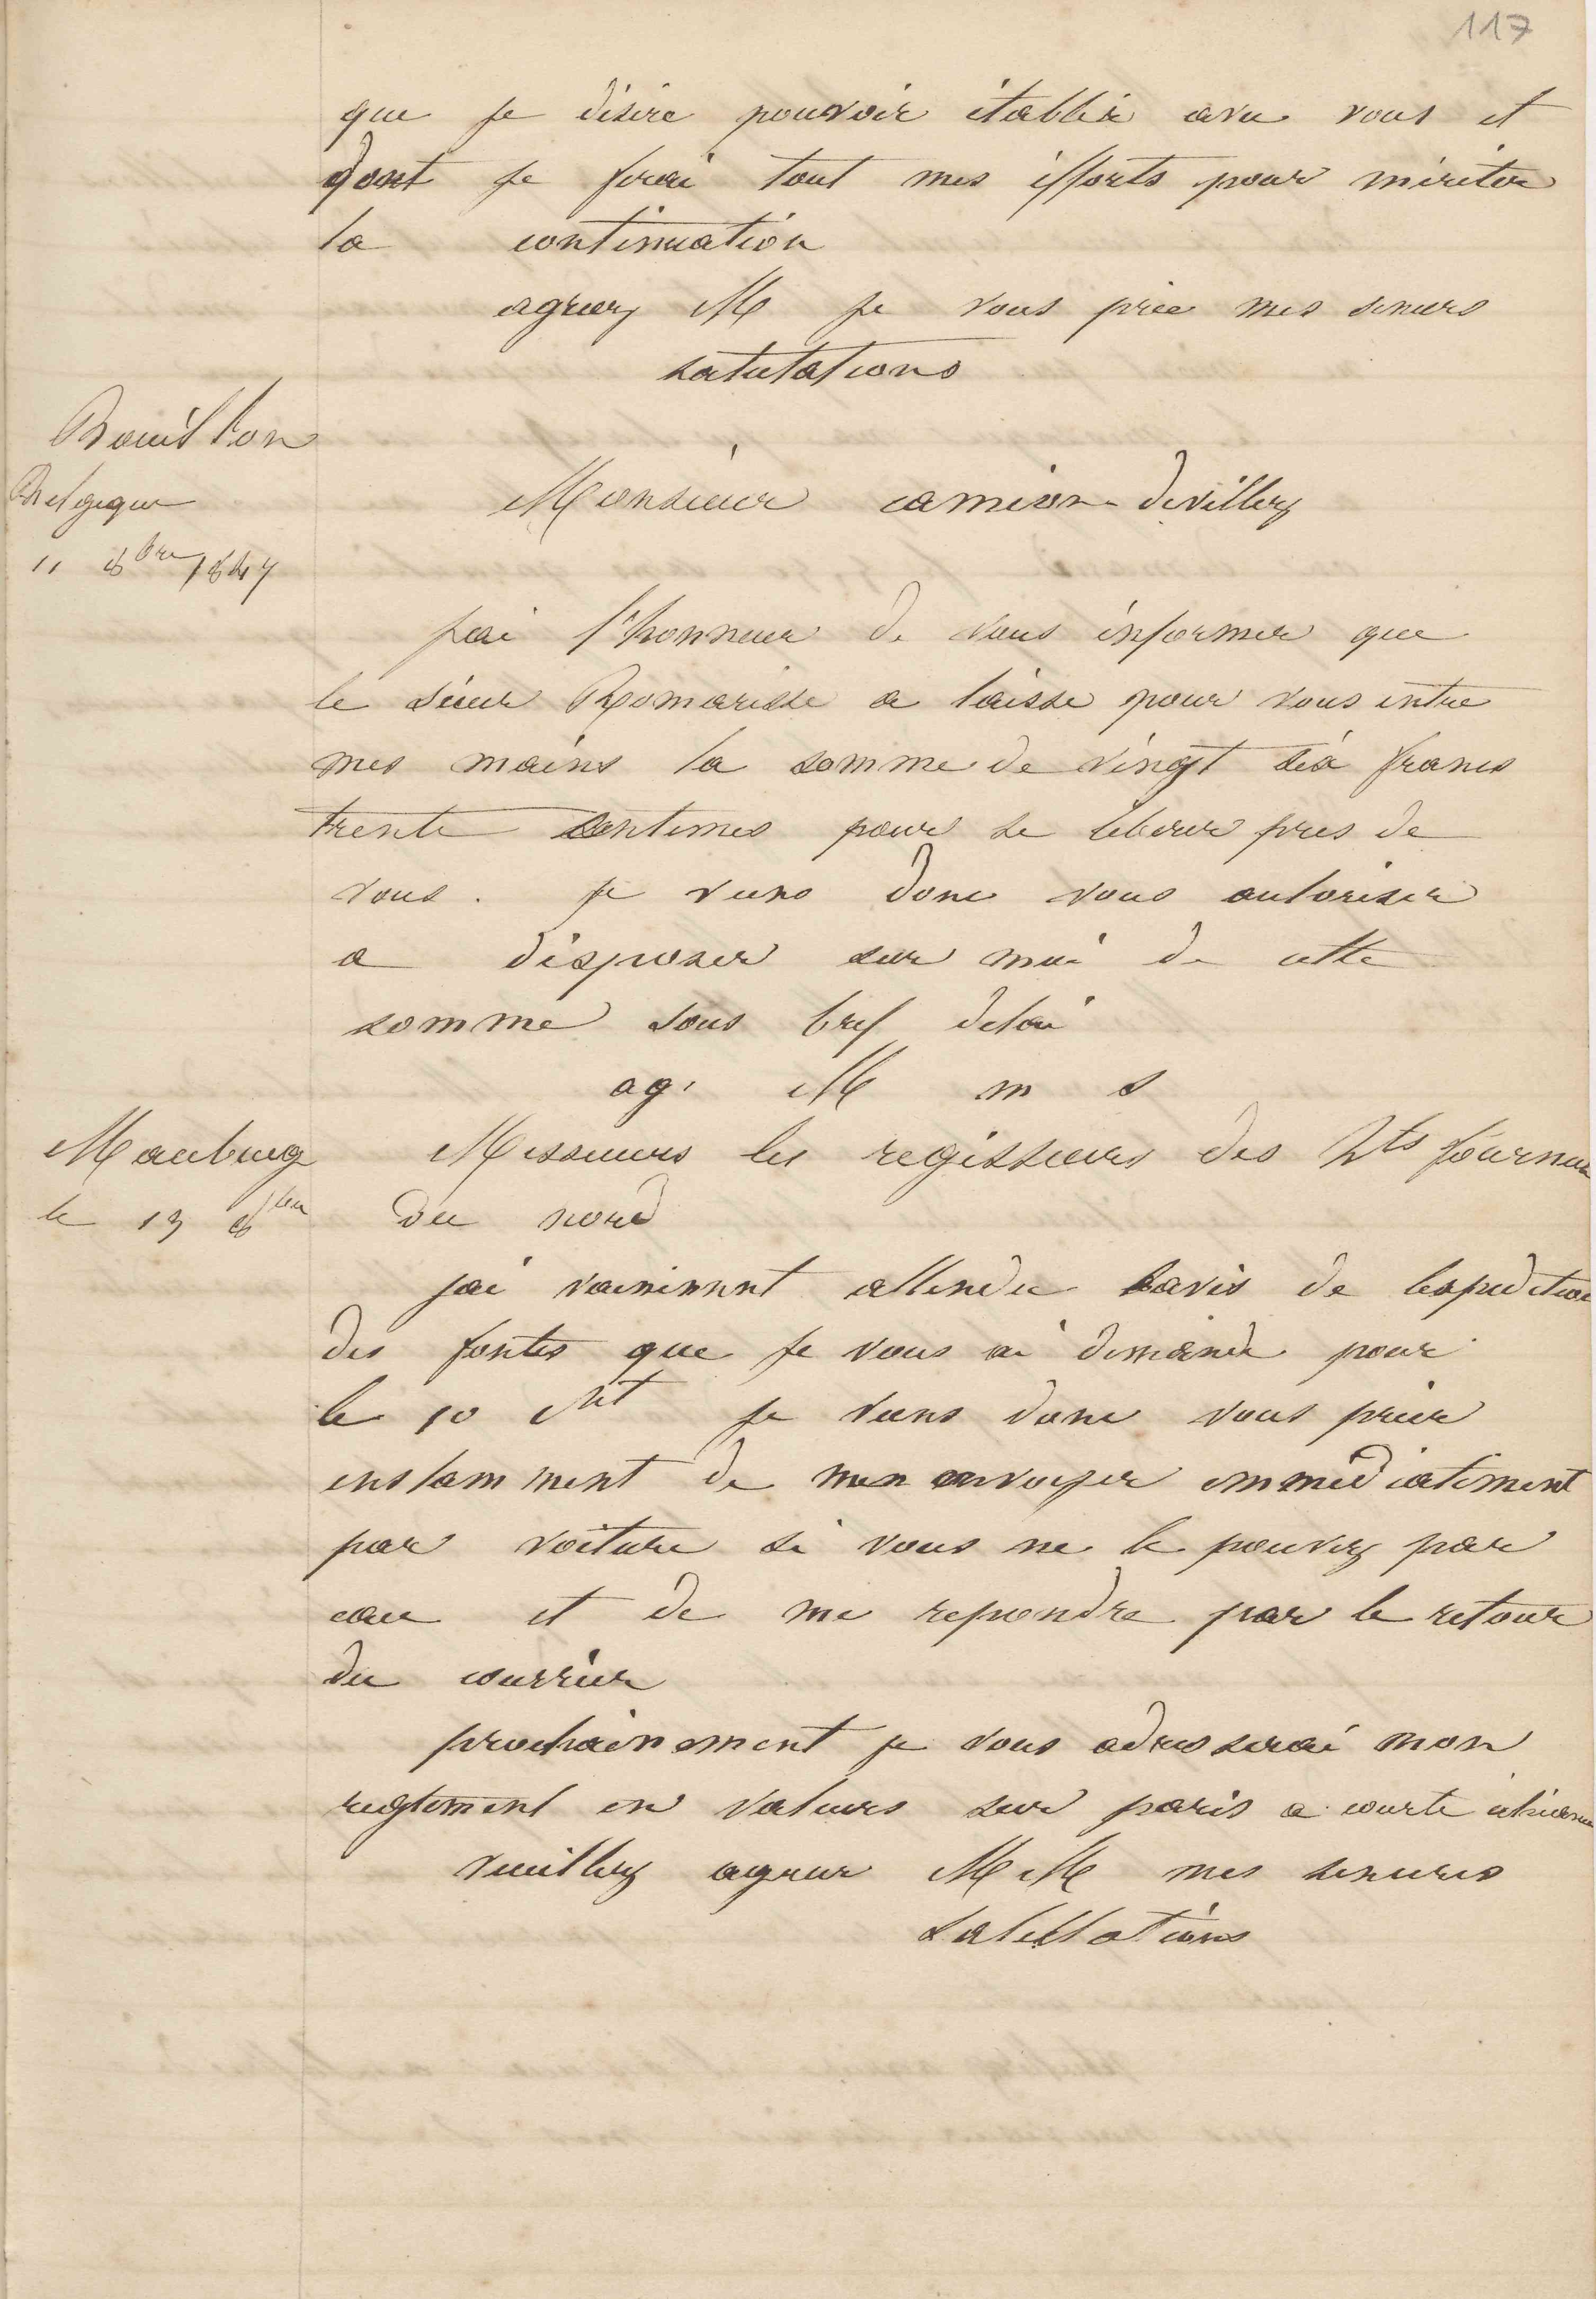 117
que je désire pouvoir établir avec vous et
dont je ferai tout mes efforts pour mériter
la continuation
agreez M je vous prie mes sincers
salutations
Bouillon
Belgique
11 8bre 1847
Monsieur camion devillez
jai l'honneur de vous informer que
le sieur Romarisse a laisse pour vous entre
mes mains la somme de vingt six francs
trente centimes pour se liberer pres de
vous. je viens donc vous autoriser
a disposer sur moi de cette
somme sous bref delai
ag. M m s
Maubeug
le 13 8bre
Messieurs les regisseurs des hts fourneau
du nord
jai vainement attendu lavis de lexpedition
des fontes que je vous ai demandé pour
le 10 Ct je viens donc vous prier
instamment de men envoyer immédiatement
par voiture si vous ne le pouvez par
eau et de me repondre par le retour
du courrier
prochainement je vous adresserai mon
reglement en valeurs sur paris a courte echeance
veuillez agreer MM mes sinceres
salutations